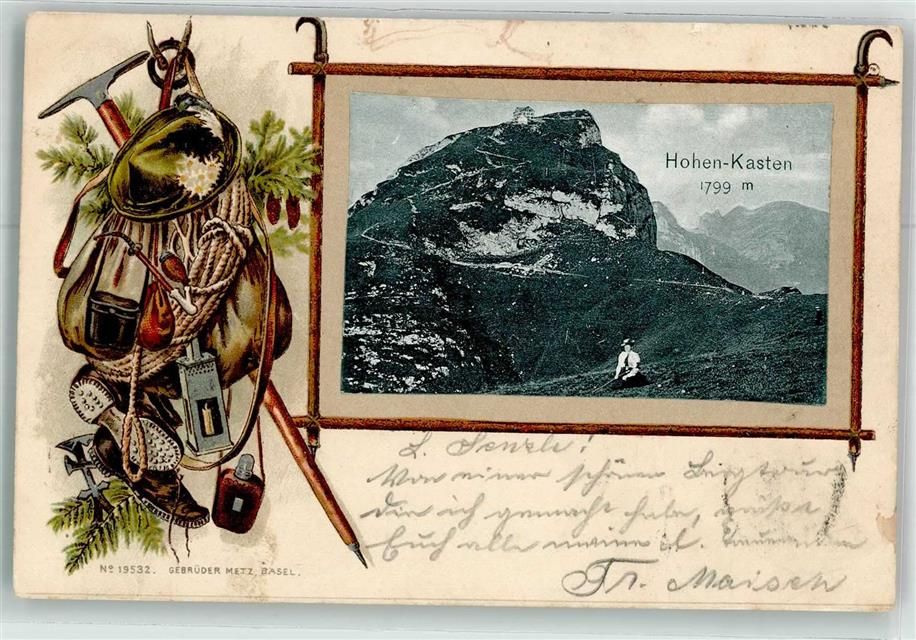 Hohen-Kasten
1799 m
L. Senzle!
Von einer schönen Bergtour
die ich gemacht habe, grüßt
Euch alle meine l.
Fr. Maisch
Nº 19532. GEBRÜDER METZ, BASEL.